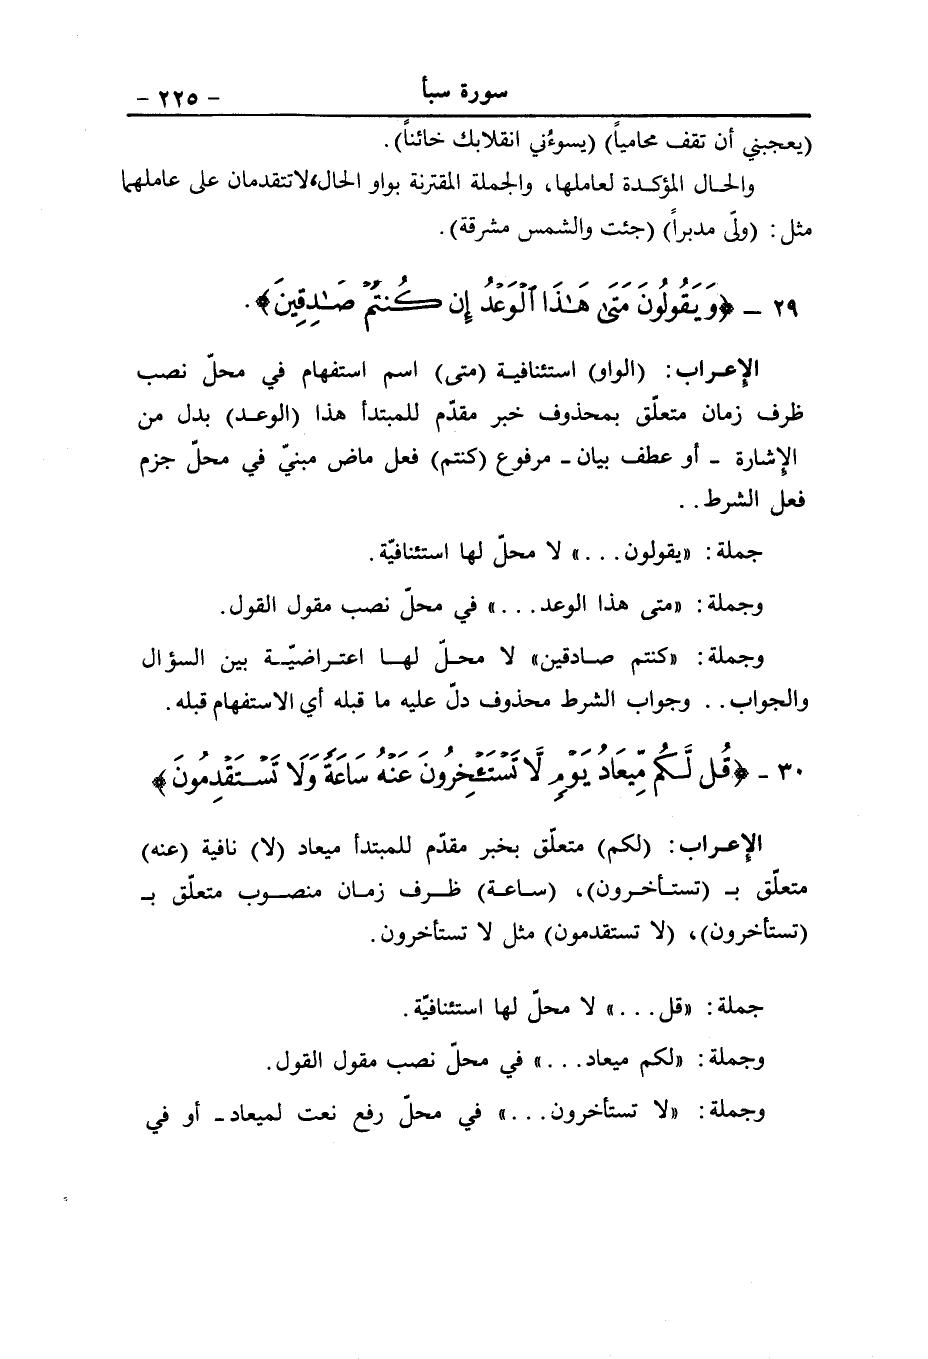 سورة سبأ - ٢٢٥ -
(يعجبني أن تقف محامياً) (يسوءُني انقلابك خائناً).
والحال المؤكدة لعاملها، والجملة المقترنة بواو الحال، لا تتقدمان على عاملهما
مثل: (ولّى مدبراً) (جئت والشمس مشرقة).
٢٩ - ﴿وَيَقُولُونَ مَتَىٰ هَـٰذَا ٱلْوَعْدُ إِن كُنتُمْ صَـٰدِقِينَ﴾.
الإعراب: (الواو) استئنافية (متى) اسم استفهام في محلّ نصب
ظرف زمان متعلّق بمحذوف خبر مقدّم للمبتدأ هذا (الوعد) بدل من
الإشارة - أو عطف بيان - مرفوع (كنتم) فعل ماض مبنيّ في محلّ جزم
فعل الشرط..
جملة: «يقولون...» لا محلّ لها استئنافيّة.
وجملة: «متى هذا الوعد...» في محلّ نصب مقول القول.
وجملة: «كنتم صادقين» لا محلّ لها اعتراضيّة بين السؤال
والجواب.. وجواب الشرط محذوف دلّ عليه ما قبله أي الاستفهام قبله.
٣٠ - ﴿قُل لَّكُم مِّيعَادُ يَوْمٍ لَّا تَسْتَـْٔخِرُونَ عَنْهُ سَاعَةً وَلَا تَسْتَقْدِمُونَ﴾
الإعراب: (لكم) متعلّق بخبر مقدّم للمبتدأ ميعاد (لا) نافية (عنه)
متعلّق بـ (تستأخرون)، (ساعة) ظرف زمان منصوب متعلّق بـ
(تستأخرون)، (لا تستقدمون) مثل لا تستأخرون.
جملة: «قل...» لا محلّ لها استئنافيّة.
وجملة: «لكم ميعاد...» في محلّ نصب مقول القول.
وجملة: «لا تستأخرون...» في محلّ رفع نعت لميعاد - أو في